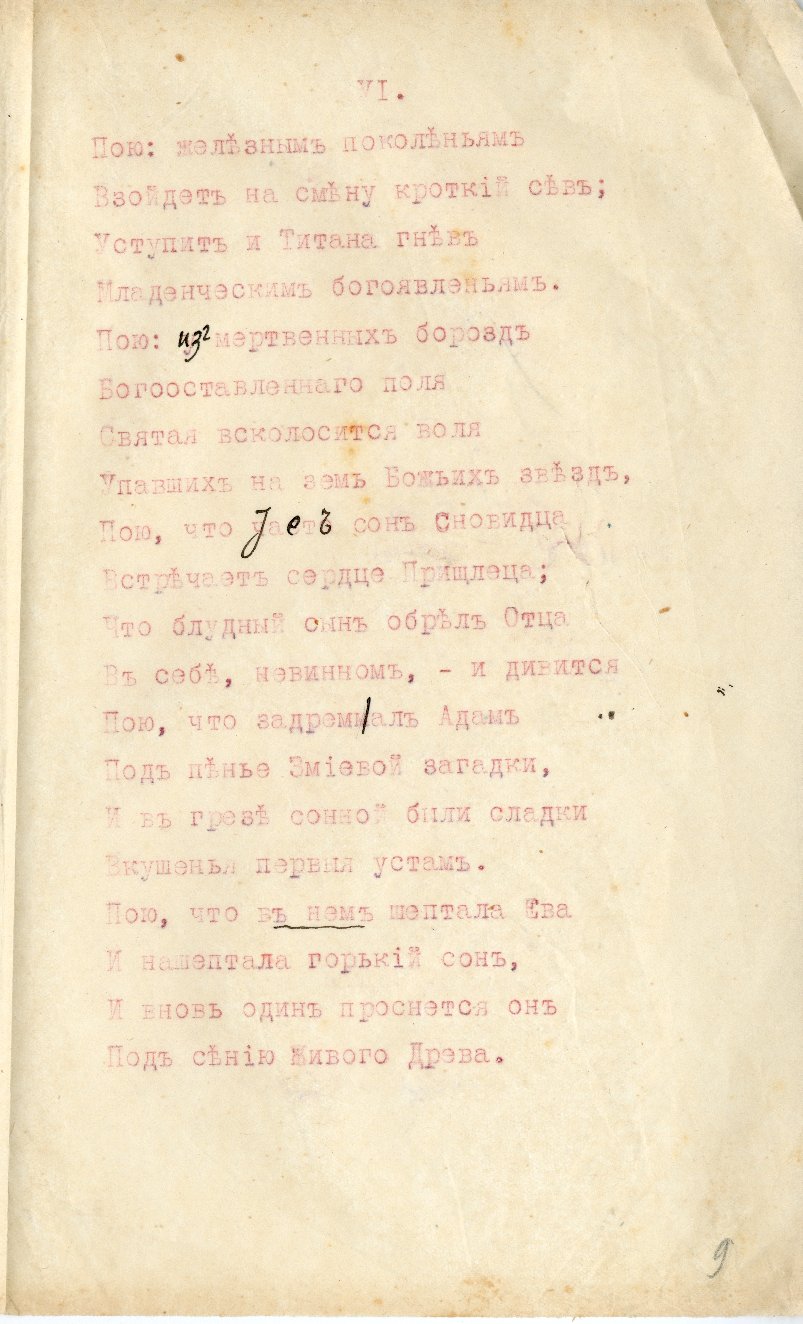 VI.
Пою: желѣзнымъ поколѣньямъ
Взойдетъ на смѣну кроткій сѣвъ;
Уступитъ и Титана гнѣвъ
Младенческимъ богоявленьямъ.
Пою: изъ мертвенныхъ бороздъ
Богооставленнаго поля
Святая всколосится воля
Упавшихъ на земь Божьихъ звѣздъ,
Пою, что сонъ Сновидца
Встрѣчаетъ сердце Пришлеца;
Что блудный сынъ обрѣлъ Отца
Въ себѣ, невинномъ, - и дивится
Пою, что задремалъ Адамъ
Подъ пѣнье Зміевой загадки,
И въ грезѣ сонной были сладки
Вкушенья первыя устамъ.
Пою, что въ немъ шептала Ева
И нашептала горькій сонъ,
И вновь одинъ проснется онъ
Подъ сѣнію Живого Древа.
9